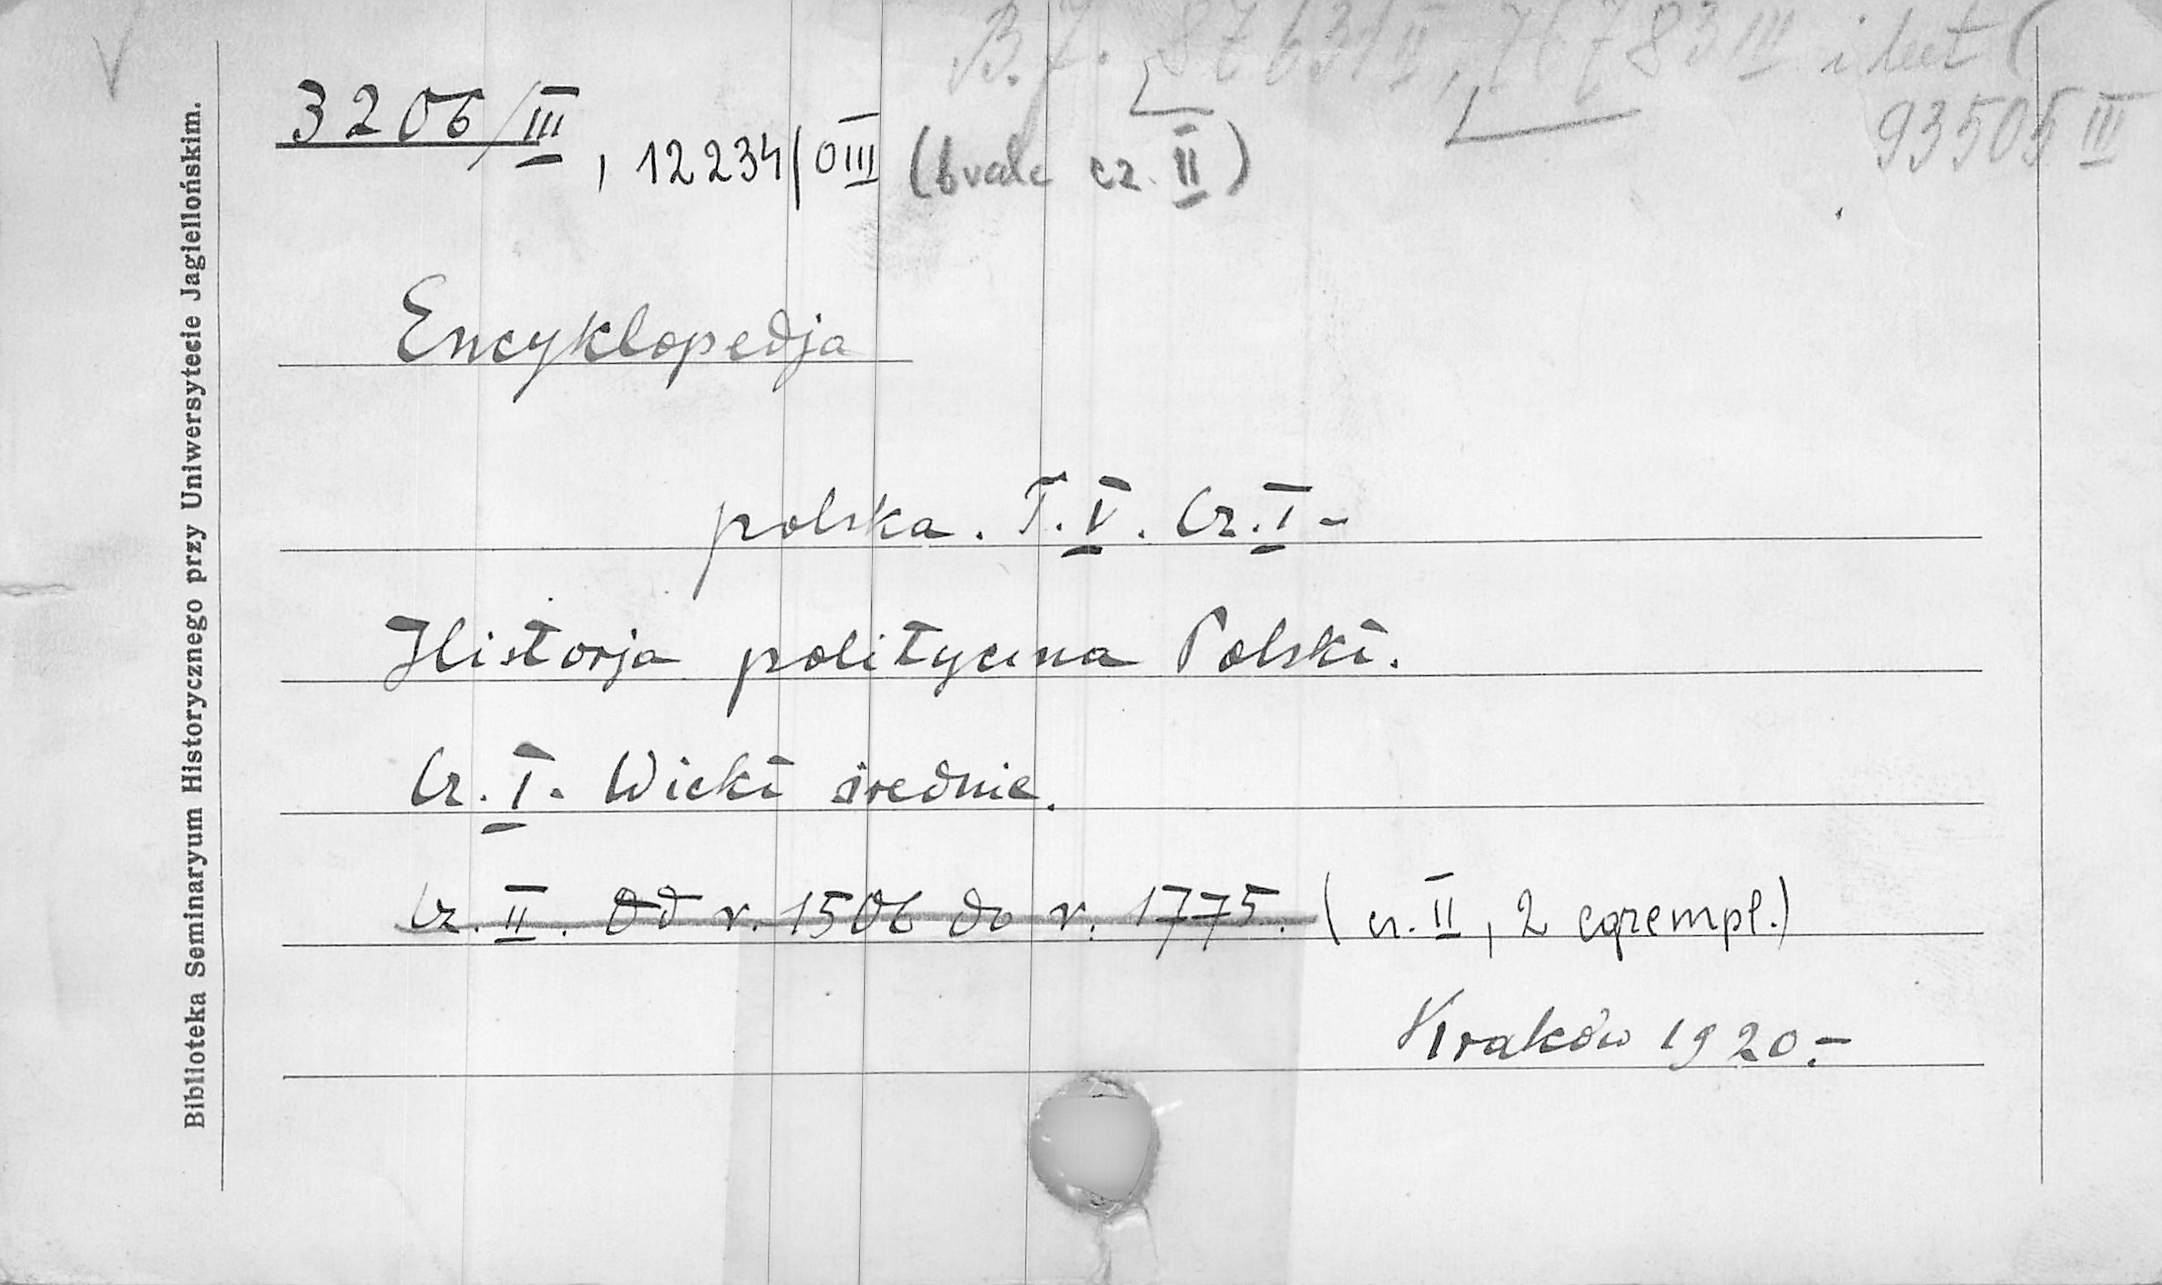 B.J. 87631 II, 76783 III i lect (
93505 III
3206/III, 12234/OIII (brak cz. II)
Encyklopedja
polska. T. V. Cz. I -
Historja polityczna Polski.
Cz. I. Wieki średnie.
Cz. II. Od r. 1506 do r. 1775. (cz. II, 2 egzempl.)
Kraków 1920.-
Biblioteka Seminaryum Historycznego przy Uniwersytecie Jagiellońskim.